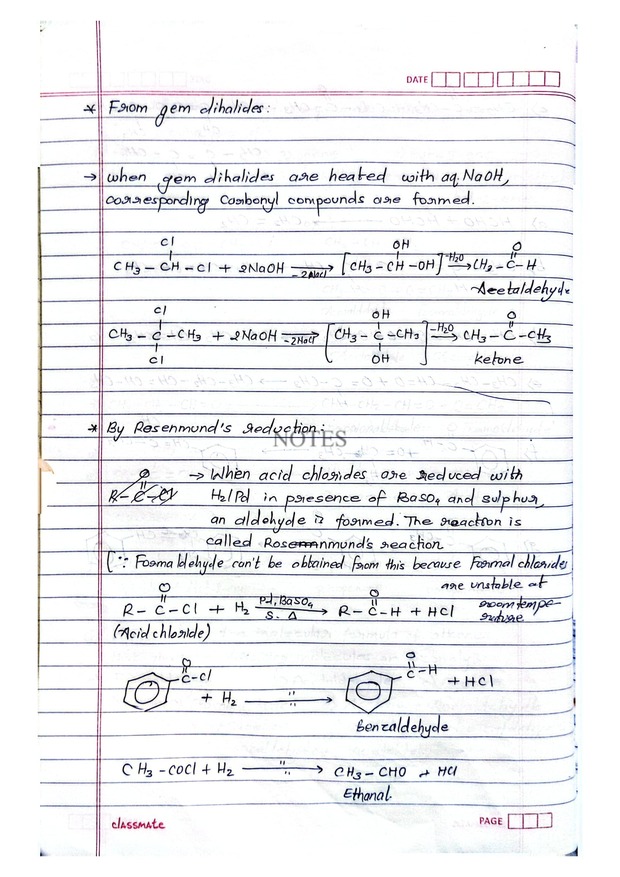 DATE
* From gem dihalides:
→ when gem dihalides are heated with aq. NaOH,
corresponding Carbonyl compounds are formed.
Cl OH O
CH3 – CH – Cl + 2NaOH –2NaCl→ [CH3 – CH – OH] –H2O→ CH3 – C – H
Acetaldehyde
Cl OH O
CH3 – C – CH3 + 2NaOH –2NaCl→ [CH3 – C – CH3] –H2O→ CH3 – C – CH3
Cl OH ketone
* By Rosenmund's reduction:
NOTES
O
R – C – Cl → When acid chlorides are reduced with
H2/Pd in presence of BaSO4 and sulphur,
an aldehyde is formed. The reaction is
called Rosenmund's reaction
[∵ Formaldehyde can't be obtained from this because Formal chlorides
are unstable at
room tempe-
rature
O O
R – C – Cl + H2 Pd, BaSO4 S. Δ → R – C – H + HCl
(Acid chloride)
O O
C – Cl + H2 " → C – H + HCl
benzaldehyde
CH3 – COCl + H2 " → CH3 – CHO + HCl
Ethanal.
classmate
PAGE